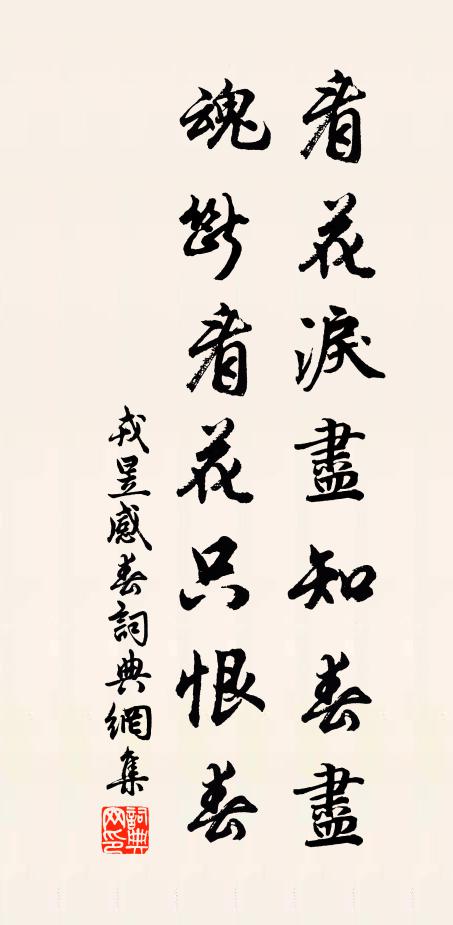 看花淚盡知春盡
魂斷看花只恨春
戎昱感春詞典網集
詞典网印